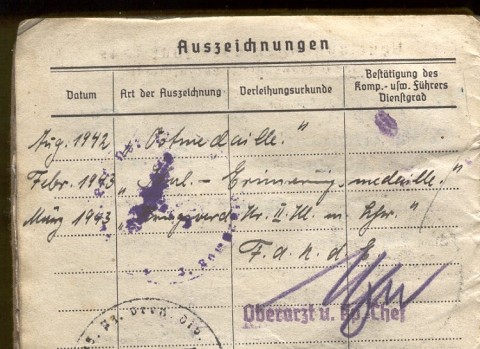 Auszeichnungen
Datum Art der Auszeichnung Verleihungsurkunde Bestätigung des Komp.- usw. Führers Dienstgrad
Aug. 1942 „Ostmedaille."
Febr. 1943 „ - Erinnerungsmedaille."
März 1943 „Kriegsverd. Kr. II. Kl. m. Schw."
F. d. R. d. A.
Oberarzt u. Kp. Chef